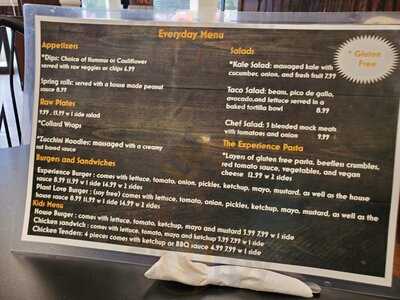 Everyday Menu
Appetizers
*Dips: Choice of Hummus or Cauliflower
served with raw veggies or chips 6.99
Spring rolls: served with a house made peanut
sauce 8.99
Raw Plates
9.99 . 11.99 w 1 side salad
*Collard Wraps
*Zucchini Noodles: massaged with a creamy
nut based sauce
Salads
*Kale Salad: massaged kale with
cucumber, onion, and fresh fruit 7.99
Taco Salad: beans, pico de gallo,
avocado,and lettuce served in a
baked tortilla bowl 8.99
Chef Salad: 3 blended mock meats
with tomatoes and onion 9.99
* Gluten
Free
The Experience Pasta
*Layers of gluten free pasta, beefless crumbles,
red tomato sauce, vegetables, and vegan
cheese 12.99 w 2 sides
Burgers and Sandwiches
Experience Burger : comes with lettuce, tomato, onion, pickles, ketchup, mayo, mustard, as well as the house
sauce 8.99 11.99 w 1 side 14.99 w 2 sides
Plant Love Burger : (soy free) comes with lettuce, tomato, onion, pickles, ketchup, mayo, mustard, as well as the
house sauce 8.99 11.99 w 1 side 14.99 w 2 sides
Kids Menu
House Burger : comes with lettuce, tomato, ketchup, mayo and mustard 3.99 7.99 w 1 side
Chicken sandwich : comes with lettuce, tomato, mayo and ketchup 3.99 7.99 w 1 side
Chicken Tenders: 4 pieces comes with ketchup or BBQ sauce 4.99 7.99 w 1 side